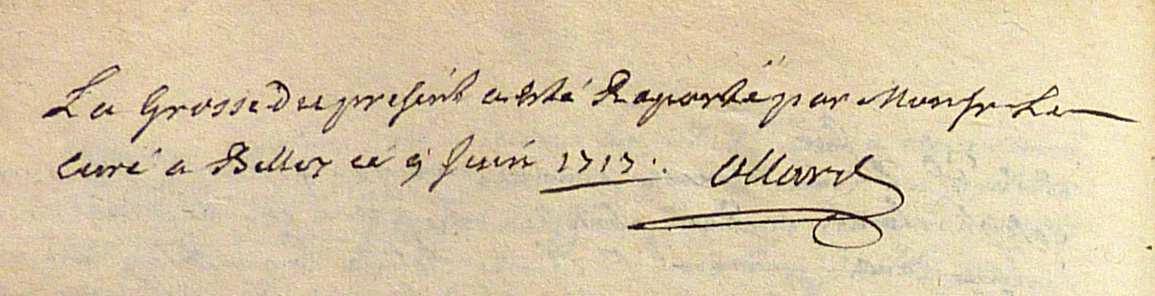 La Grosse du present a esté Raporté par Monsr Le
Curé a Belley cé 9 Juin 1717. Ollard